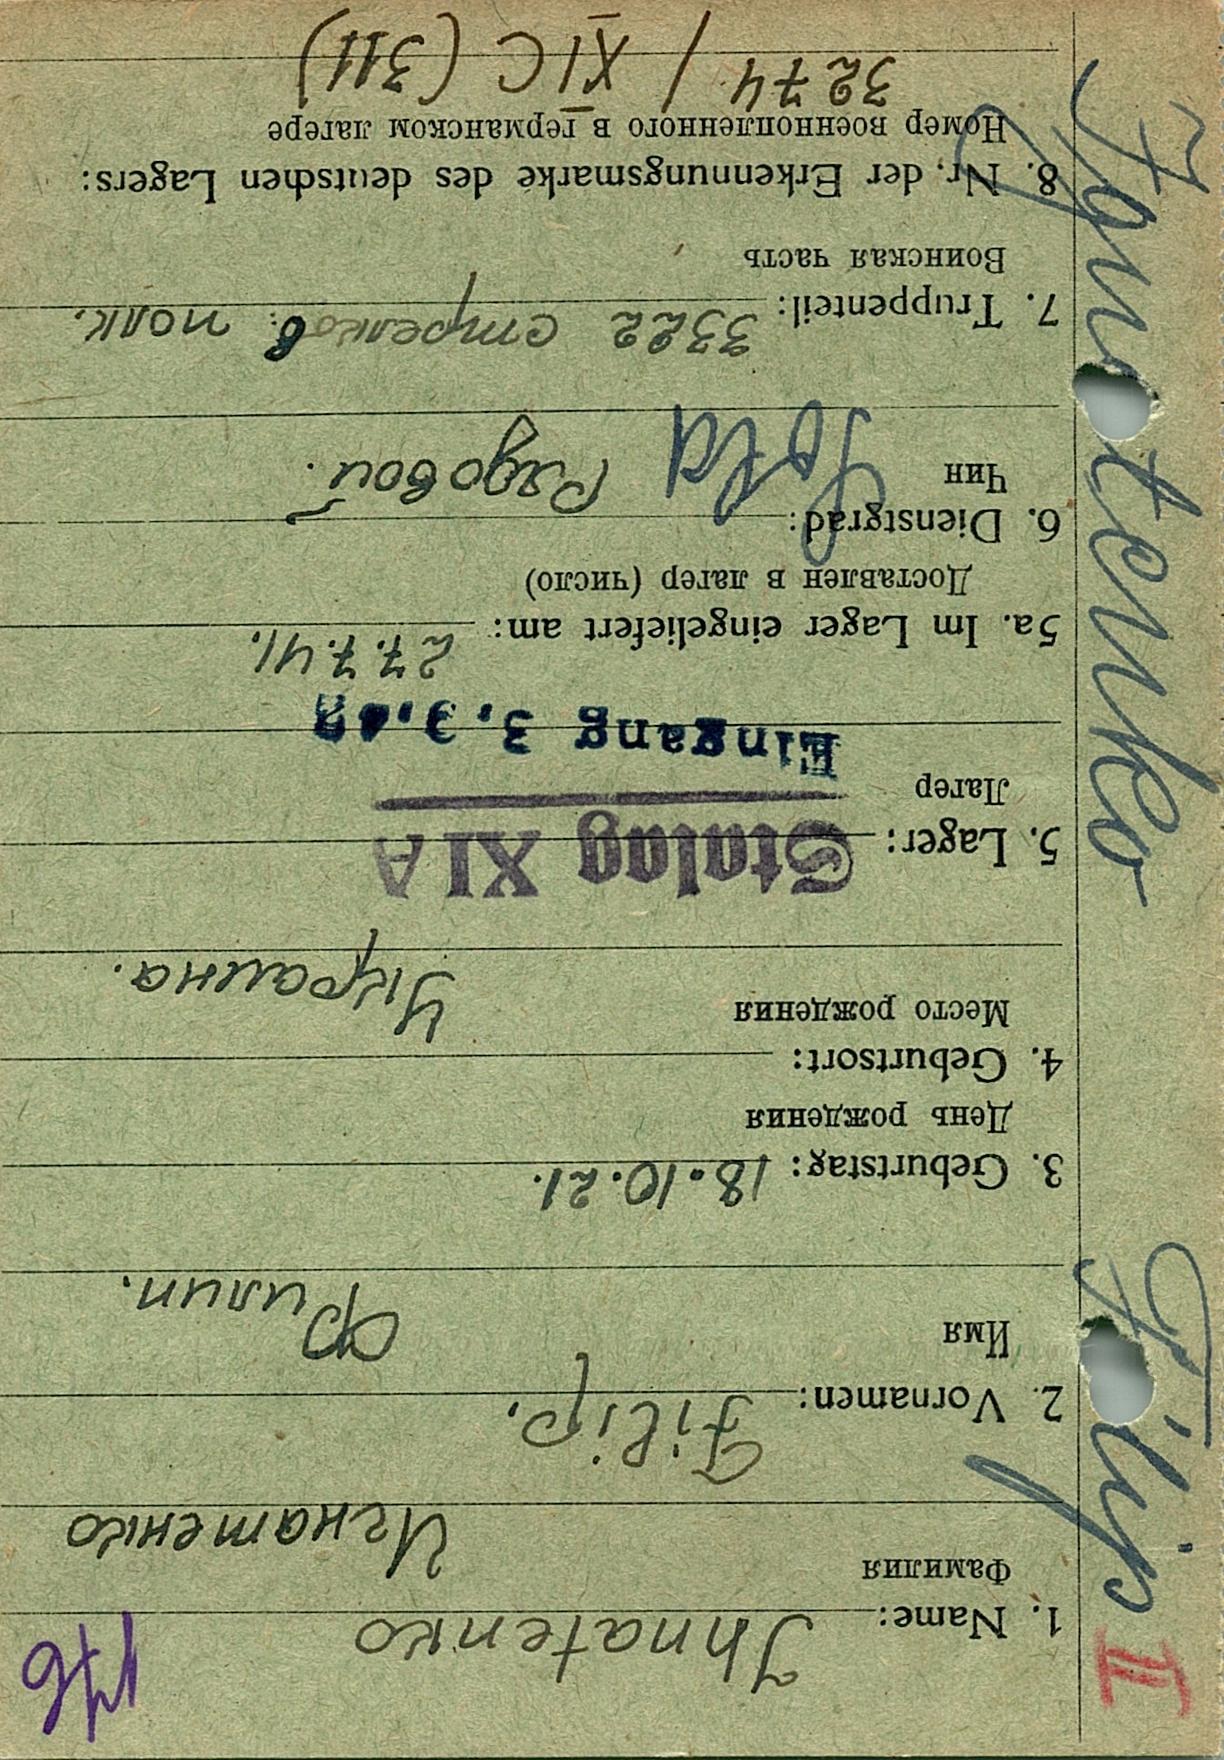 176
III
Filip
Ignatenko
1. Name: Ihnatenko
Фамилия
Игнатенко
2. Vornamen: Filip.
Имя
Филип.
3. Geburtstag: 18.10.21.
День рождения
4. Geburtsort:
Место рождения
Украина.
5. Lager: Stalag XI A
Лагер
Eingang 3.
5a. Im Lager eingeliefert am: 27.7.41.
Доставлен в лагер (число)
6. Dienstgrad: Sold
Чин
Рядовой.
7. Truppenteil: 3322 стрелков. полк.
Воинская часть
8. Nr. der Erkennungsmarke des deutschen Lagers:
Номер военнопленного в германском лагере
3274 / XIC (311)